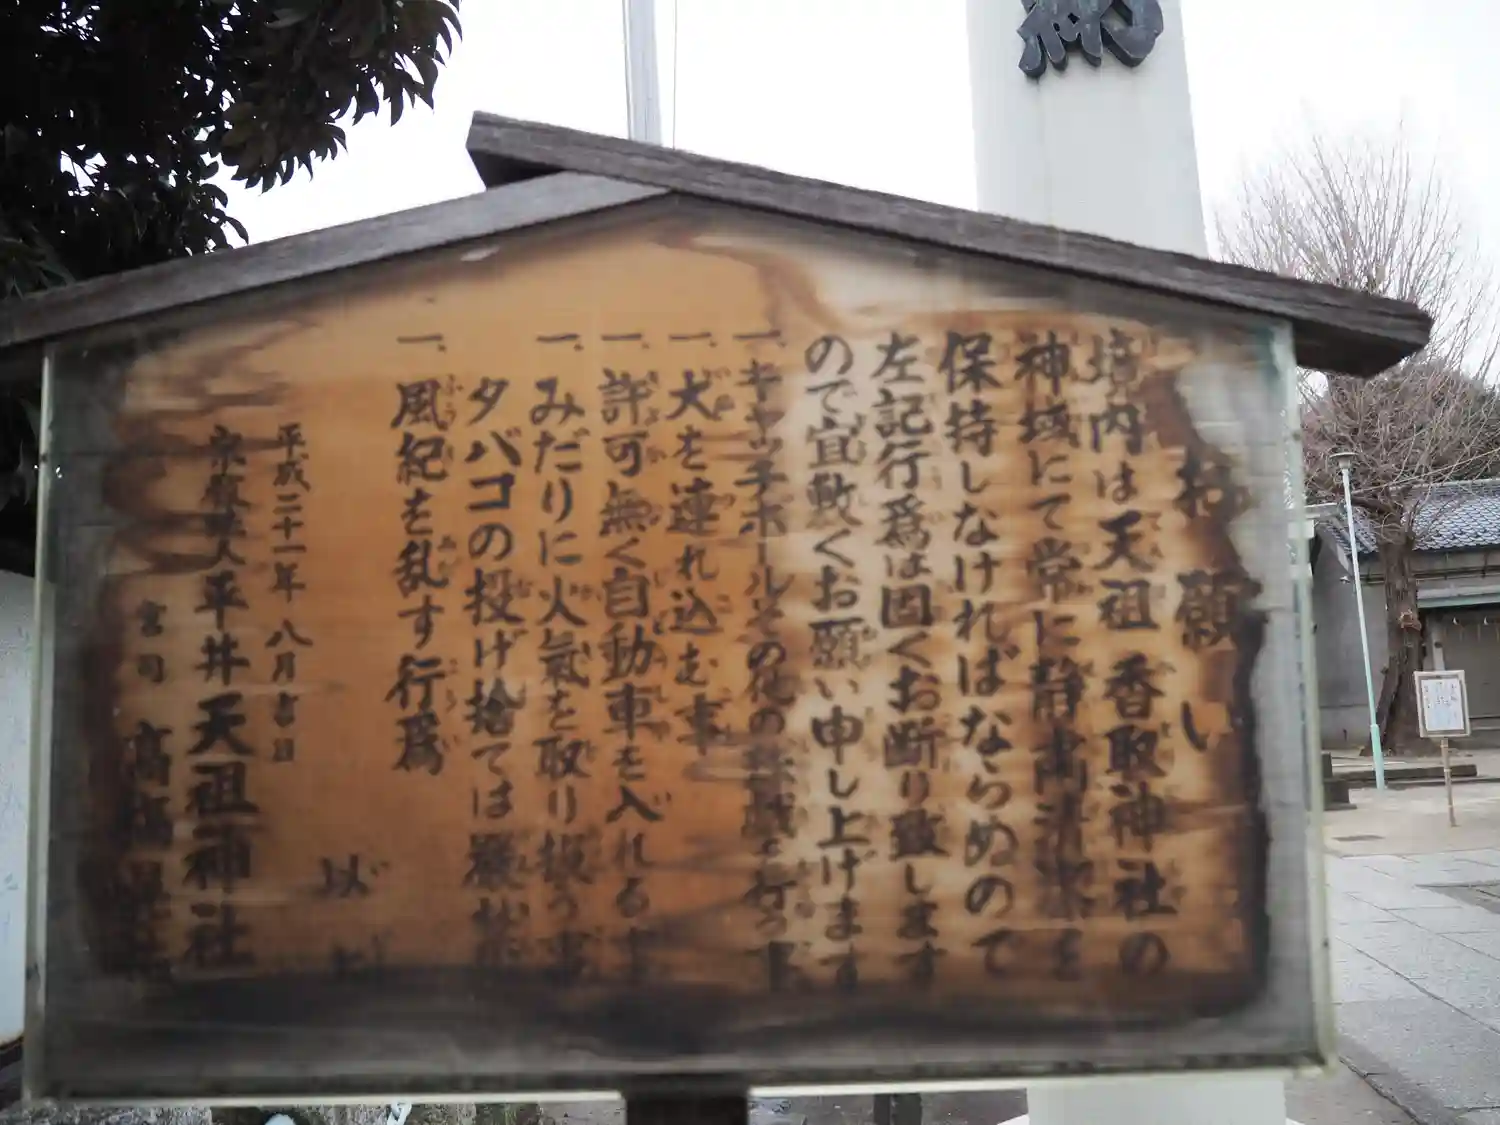 納
お願い
境内は天祖香取神社の
神域にて常に静粛清潔を
保持しなければならぬので
左記行爲は固くお断り致します
ので宜敷くお願い申し上げます
一、キャッチボールその他の遊戯を行う事
一、犬を連れ込む事
一、許可無く自動車を入れる事
一、みだりに火氣を取り扱う事
タバコの投げ捨ては嚴禁
一、風紀を乱す行爲
以上
平成二十一年八月吉日
宗教法人平井天祖神社
宮司 高橋